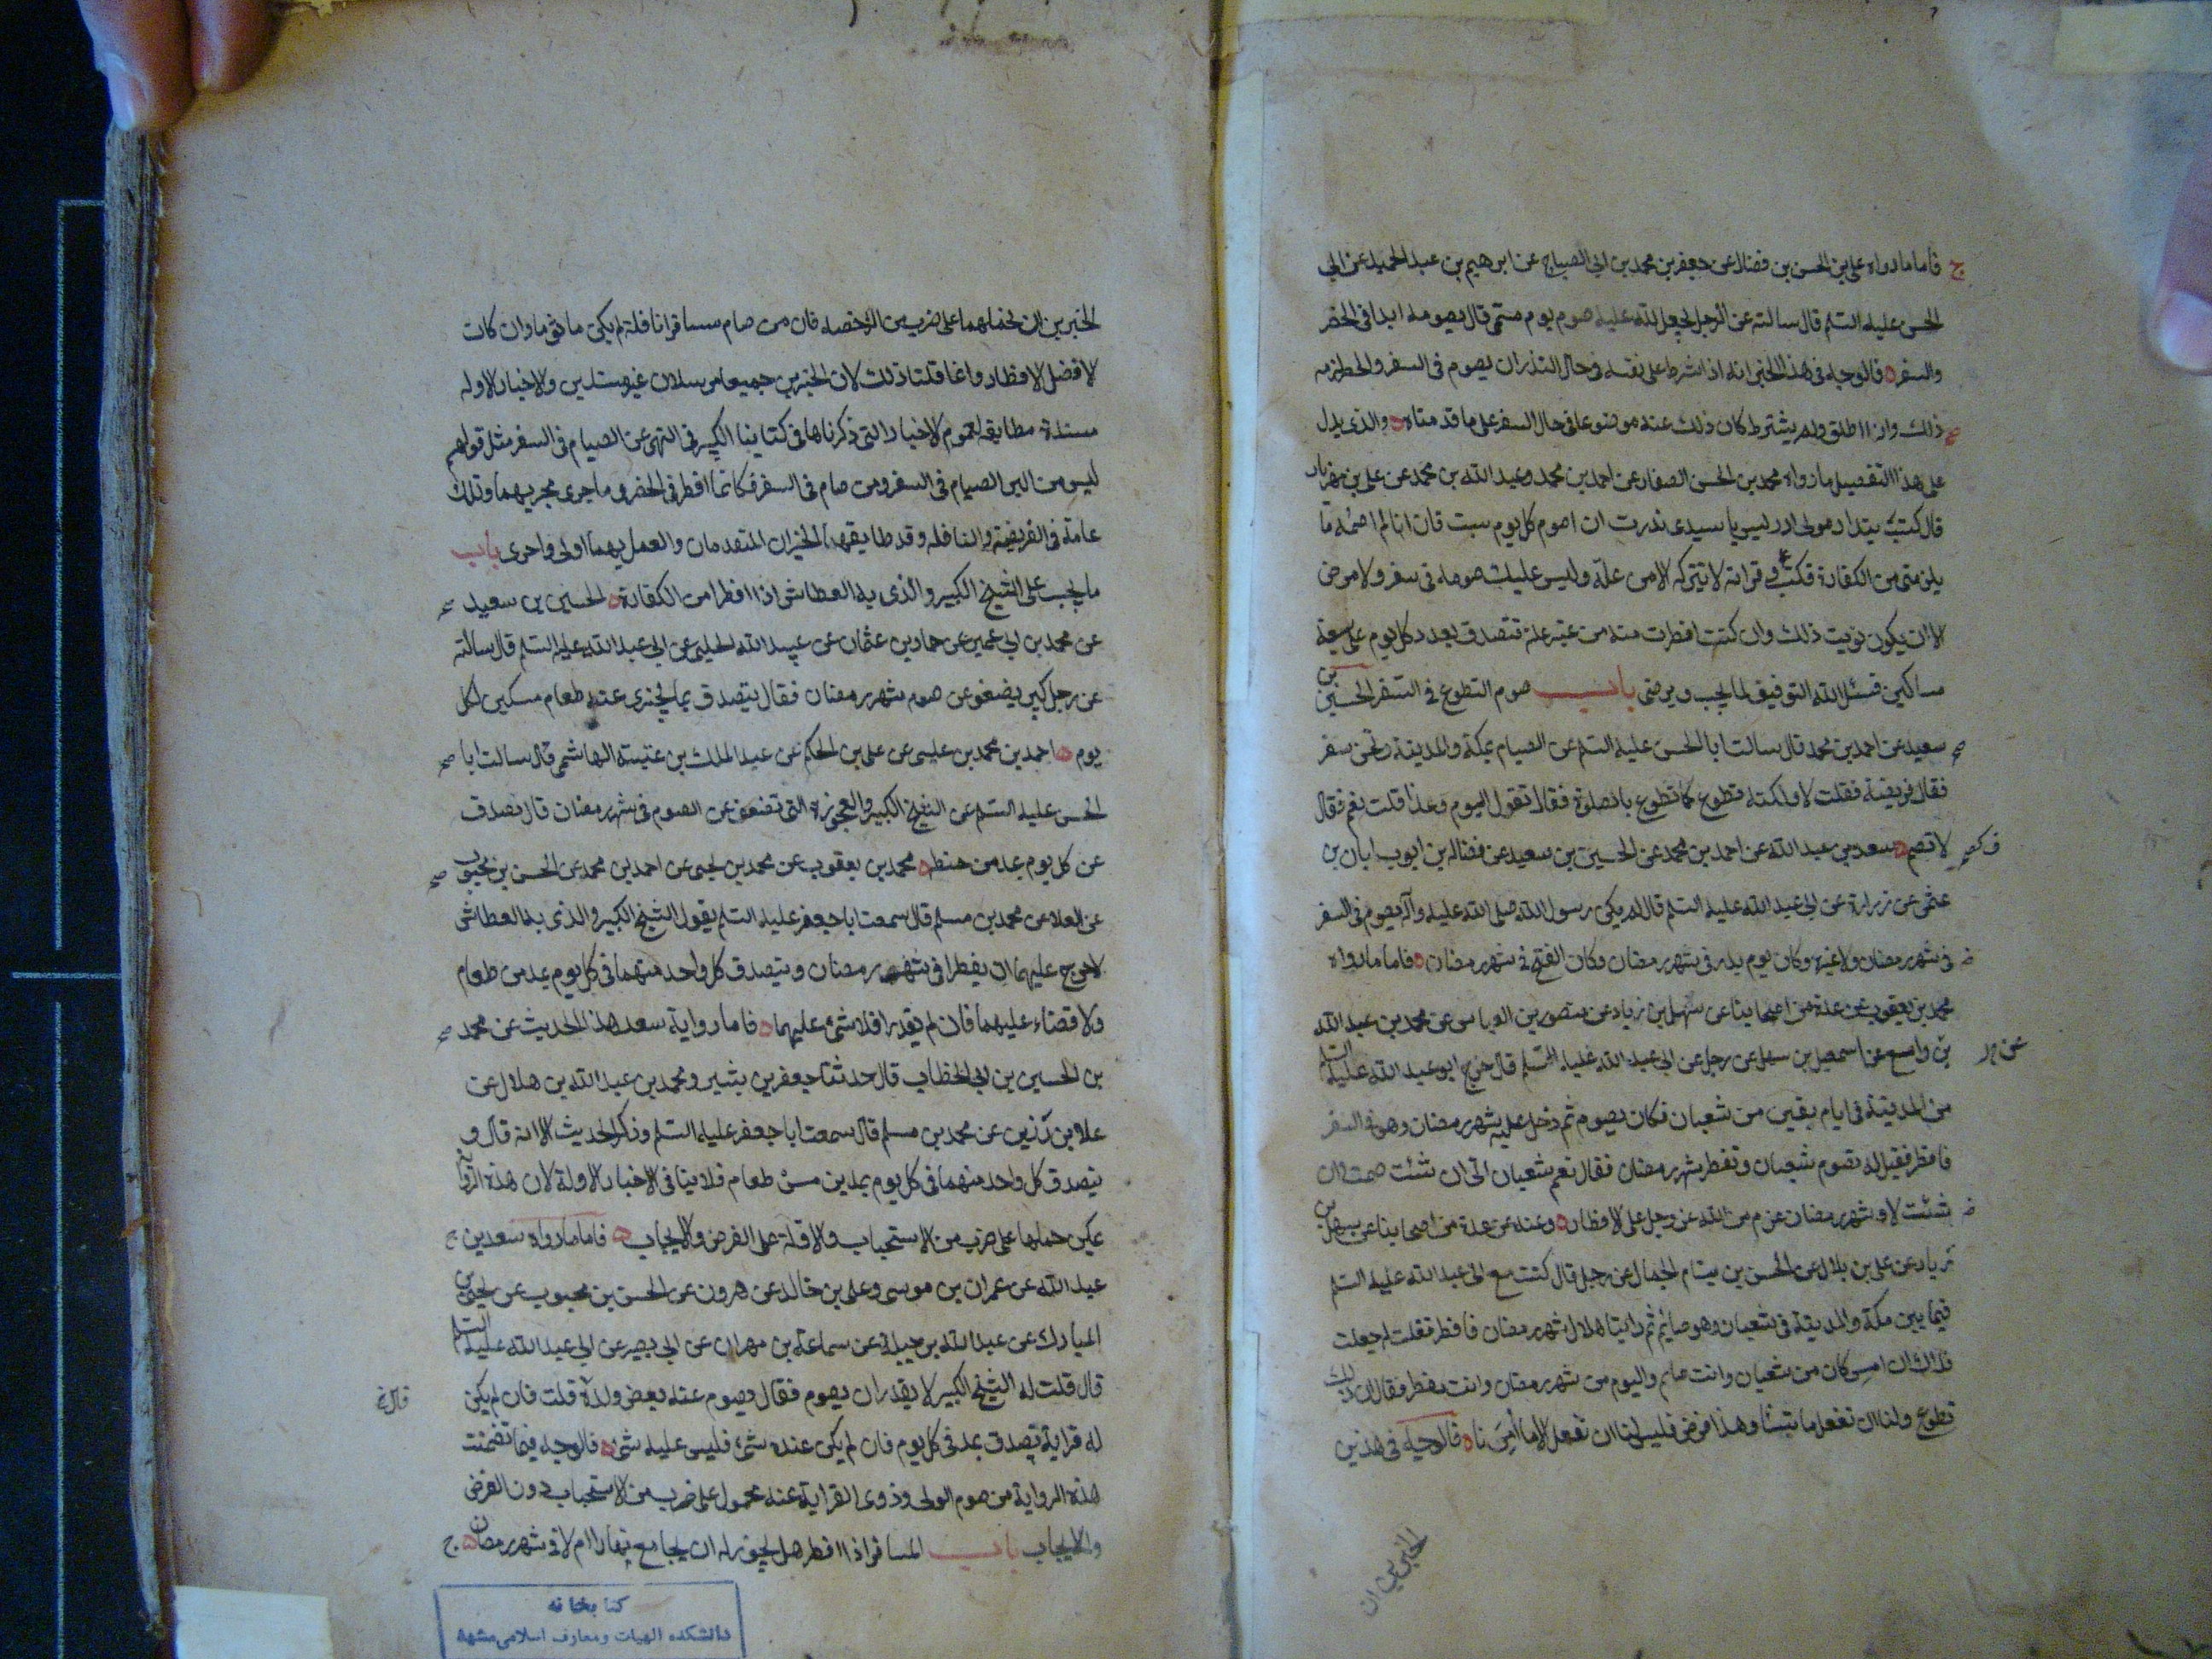 ج فاما ما رواه علي بن الحسن بن فضال عن جعفر بن محمد بن ابي الصباح عن ابرهيم بن عبد الحميد عن ابي
الحسن عليه السلم قال سالته عن الرجل يجعل لله عليه صوم يوم مسمى قال يصومه ابدا في الحضر
والسفر فالوجه في هذا الخبر انه اذا شرط على نفسه في حال النذر ان يصوم في السفر والحضر لزمه
ذلك واذا اطلق ولم يشترط كان ذلك عنه موضوعا في حال السفر على ما قدمناه والذي يدل
على هذا التفصيل ما رواه محمد بن الحسن الصفار عن احمد بن محمد وعبد الله بن محمد عن علي بن مهزيار
قال كتب بندار مولى ادريس يا سيدي نذرت ان اصوم كل يوم سبت فان انا لم اصمه ما
يلزمني من الكفارة فكتب ع وقراته لا تتركه الا من علة وليس عليك صومه في سفر ولا مرض
الا ان يكون نويت ذلك وان كنت افطرت منه من غير علة فتصدق بعدد كل يوم على سبعة
مساكين فنسئل الله التوفيق لما يحب ويرضى باب صوم التطوع في السفر الحسين بن
سعيد عن احمد بن محمد قال سالت ابا الحسن عليه السلم عن الصيام بمكة والمدينة ونحن سفر
فقال فريضة فقلت لا ولكنه تطوع كما تطوع بالصلوة فقال تقول اليوم وغدا قلت نعم فقال
لا تصم سعد بن عبد الله عن احمد بن محمد عن الحسين بن سعيد عن فضاله بن ايوب ابان بن
عثمن عن زرارة عن ابي عبد الله عليه السلم قال لم يكن رسول الله صلى الله عليه وآله يصوم في السفر
في شهر رمضان ولا غيره وكان يوم بدر في شهر رمضان وكان الفتح في شهر رمضان فاما ما رواه
محمد بن يعقوب عن عدة من اصحابنا عن سهل بن زياد عن منصور بن العباس عن محمد بن عبد الله
بن واسع عن اسمعيل بن سهل عن رجل عن ابي عبد الله عليه السلم قال خرج ابو عبد الله عليه السلم
من المدينة في ايام بقين من شعبان فكان يصوم ثم دخل عليه شهر رمضان وهو في السفر
فافطر فقيل له تصوم شعبان وتفطر شهر رمضان فقال نعم شعبان الي ان شئت صمت وان
شئت لا وشهر رمضان عزم من الله عز وجل على الافطار وعنه عن عدة من اصحابنا عن سهل بن
زياد عن علي بن بلال عن الحسن بن بسام الجمال عن رجل قال كنت مع ابي عبد الله عليه السلم
فيما بين مكة والمدينة في شعبان وهو صائم ثم راينا هلال شهر رمضان فافطر فقلت له جعلت
فداك ان امس كان من شعبان وانت صايم واليوم من شهر رمضان وانت مفطر فقال ان ذلك
تطوع ولنا ان نفعل ما شئنا وهذا فرض فليس لنا ان نفعل الا ما امرنا فالوجه في هذين
الخبرين ان
الخبرين ان نحملهما على ضرب من الرخصه فان من صام مسافرا نافلة لم يكن ماثوما وان كان
الافضل الافطار وانما قلنا ذلك لان الخبرين جميعا مرسلان غير مسندين والاخبار الاوله
مسندة مطابقه لعموم الاخبار التي ذكرناها في كتابنا الكبير في النهي عن الصيام في السفر مثل قولهم
ليس من البر الصيام في السفر ومن صام في السفر فكانما افطر في الحضر وما جرى مجريهما وتلك
عامة في الفريضة والنافله وقد طابقهما الخبران المتقدمان والعمل بهما اولى واحرى باب
ما يجب على الشيخ الكبير والذي به العطاش اذا افطرا من الكفارة الحسين بن سعيد
عن محمد بن ابي عمير عن حماد بن عثمان عن عبيد الله الحلبي عن ابي عبد الله عليه السلم قال سالته
عن رجل كبير يضعف عن صوم شهر رمضان فقال يتصدق بما يجزى عنه طعام مسكين لكل
يوم احمد بن محمد بن عيسى عن علي بن الحكم عن عبد الملك بن عتيبة الهاشمي قال سالت ابا
الحسن عليه السلم عن الشيخ الكبير والعجوزة التي تضعف عن الصوم في شهر رمضان قال تصدق
عن كل يوم بمد من حنطه محمد بن يعقوب عن محمد بن يحيى عن احمد بن محمد عن الحسن بن محبوب
عن العلا عن محمد بن مسلم قال سمعت ابا جعفر عليه السلم يقول الشيخ الكبير والذي به العطاش
لا حرج عليهما ان يفطرا في شهر رمضان ويتصدق كل واحد منهما في كل يوم بمد من طعام
ولا قضاء عليهما فان لم يقدرا فلا شئ عليهما فاما رواية سعد هذا الحديث عن محمد
بن الحسين بن ابي الخطاب قال حدثنا جعفر بن بشير ومحمد بن عبد الله بن هلال عن
علا بن رزين عن محمد بن مسلم قال سمعت ابا جعفر عليه السلم وذكر الحديث الا انه قال و
يتصدق كل واحد منهما في كل يوم بمدين من طعام فلا ينافي الاخبار الاولة لان هذه الرواية
يمكن حملها على ضرب من الاستحباب والاولة على الفرض والايجاب فاما ما رواه سعد بن ج
عبد الله عن عمران بن موسى وعلي بن خالد عن هرون عن الحسن بن محبوب عن يحيى بن
المبارك عن عبد الله بن جبلة عن سماعة بن مهران عن ابي بصير عن ابي عبد الله عليه السلم
قال قلت له الشيخ الكبير لا يقدر ان يصوم فقال يصوم عنه بعض ولده قلت فان لم يكن
له قرابة تصدق بمد في كل يوم فان لم يكن عنده شئ فليس عليه شئ فالوجه فيما تضمنت
هذه الرواية من صوم الولى وذوى القرابة عنه محمول على ضرب من الاستحباب دون الفرض
والايجاب باب المسافر اذا افطر هل يجوز له ان يجامع نهارا ام لا في شهر رمضان ج
كتابخانه
دانشكده الهيات ومعارف اسلامى مشهد